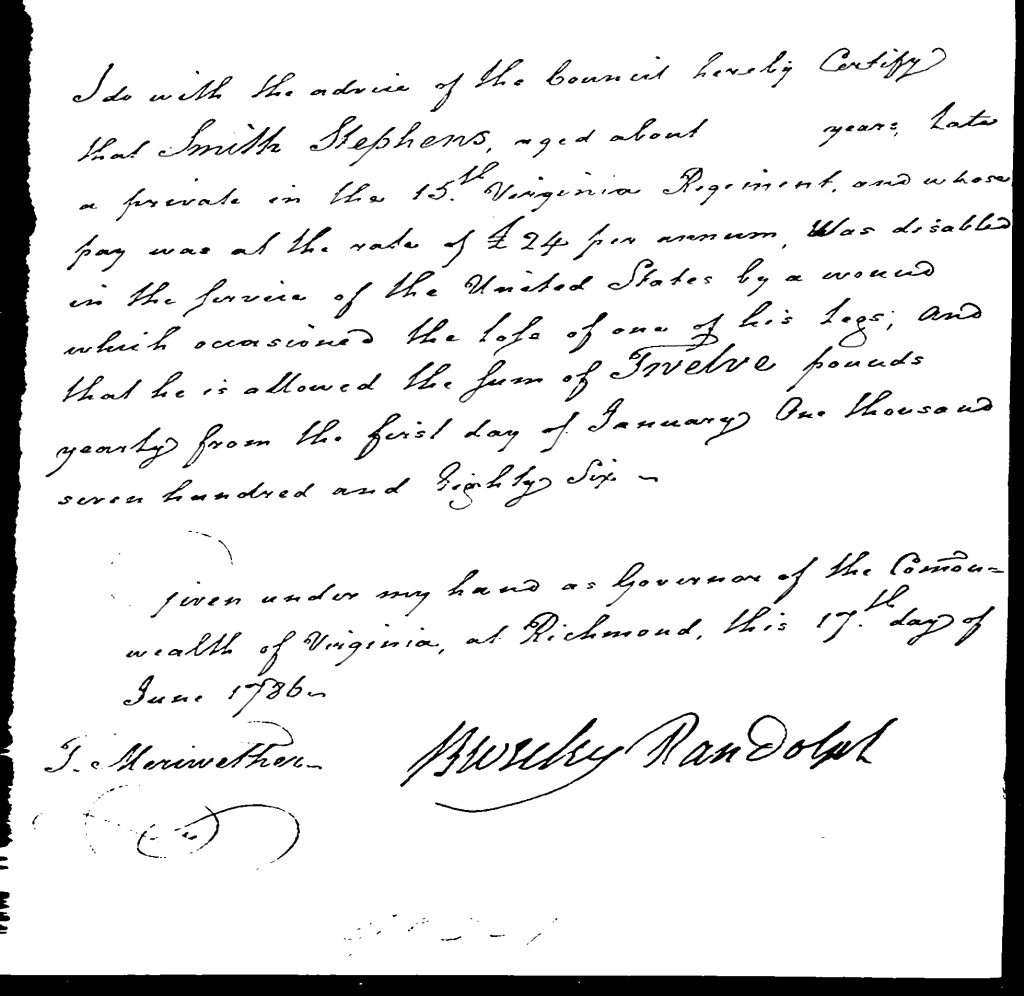 I do with the advice of the Council hereby Certify
that Smith Stephens, aged about years, Late
a private in the 15th. Virginia Regiment, and whose
pay was at the rate of £24 per annum, Was disabled
in the service of the United States by a wound
which occasioned the loss of one of his Legs; And
that he is allowed the sum of Twelve pounds
yearly from the first day of January One thousand
seven hundred and Eighty Six
Given under my hand as Governor of the Com̅on=
wealth of Virginia, at Richmond, this 17th. day of
June 1786
T. Meriwether
Beverley Randolph